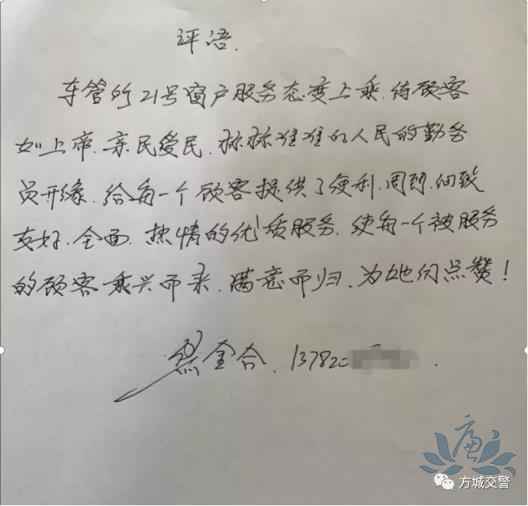 评语.
车管所21号窗户服务态度上乘.待顾客
如上帝.亲民爱民.标标准准的人民的勤务
员形象.给每一个顾客提供了便利.周到.细致
友好.全面.热情的优质服务.使每一个被服务
的顾客乘兴而来.满意而归.为她们点赞!
金合.13782
廉
方城交警